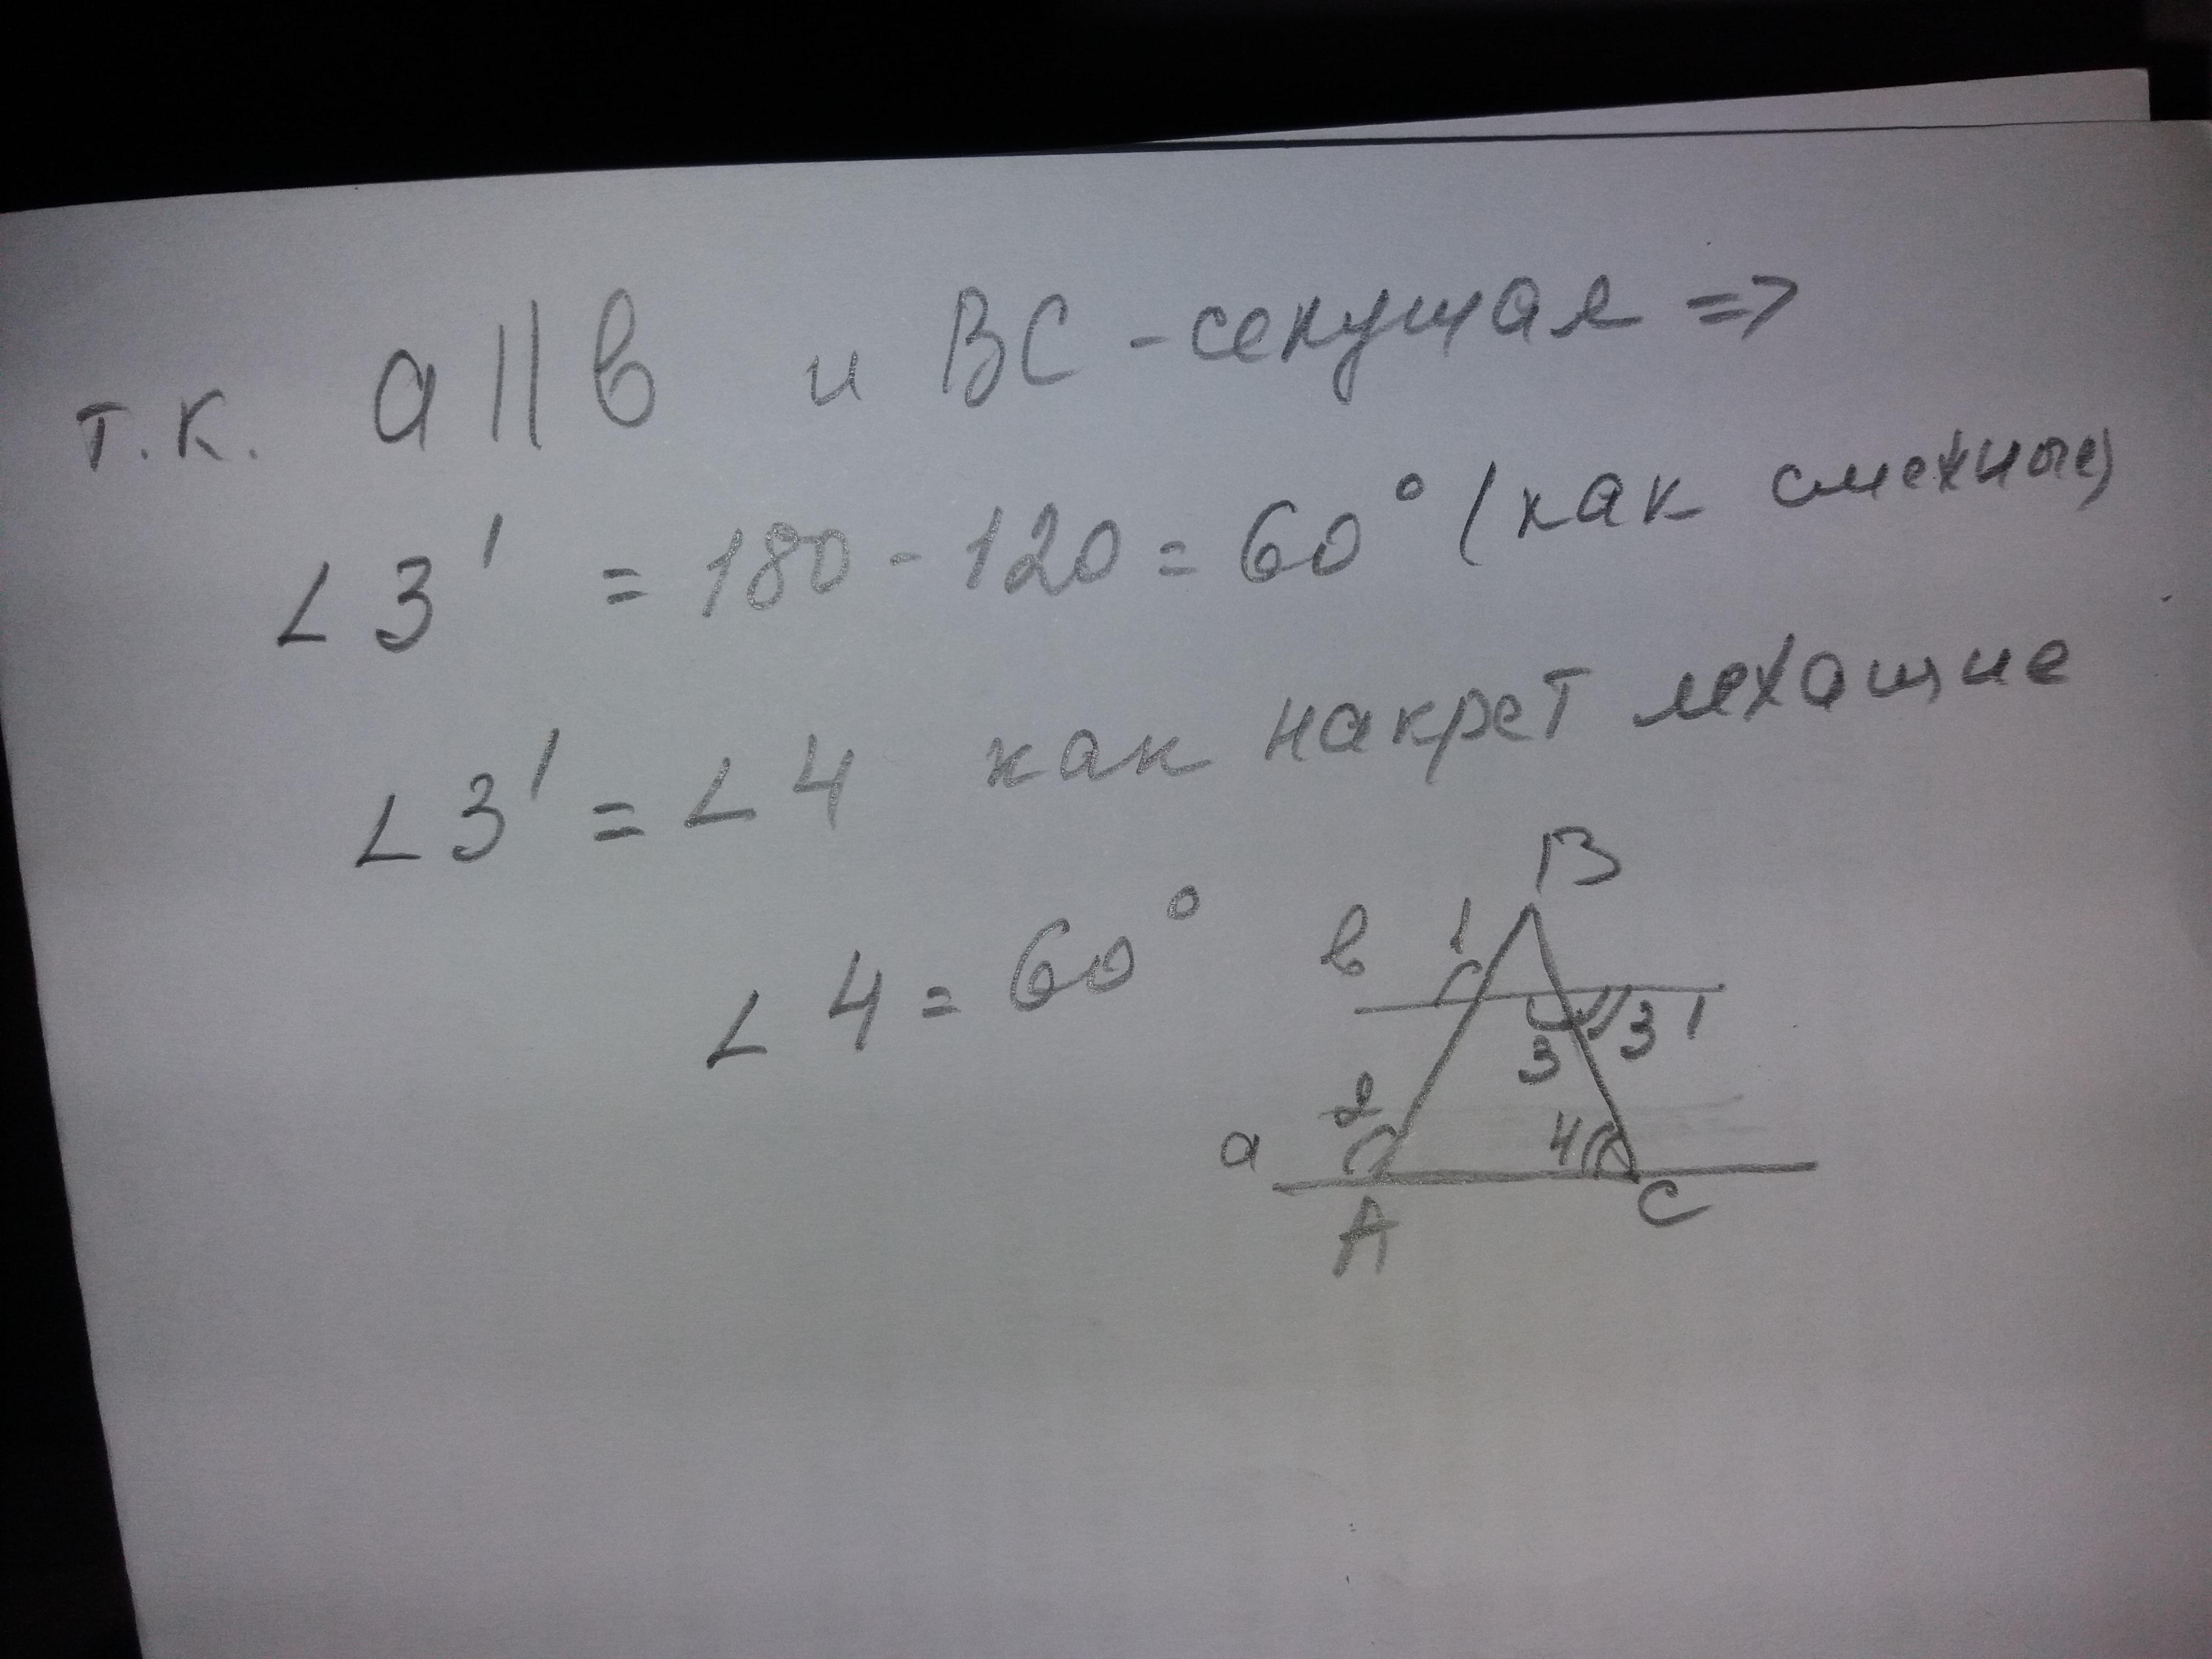 т.к. a || в и BC - секущая =>
∠3' = 180 - 120 = 60° (как смежные)
∠3' = ∠4 как накрест лежащие
∠4 = 60°
B
в 1
3 3'
2
a 4
A C